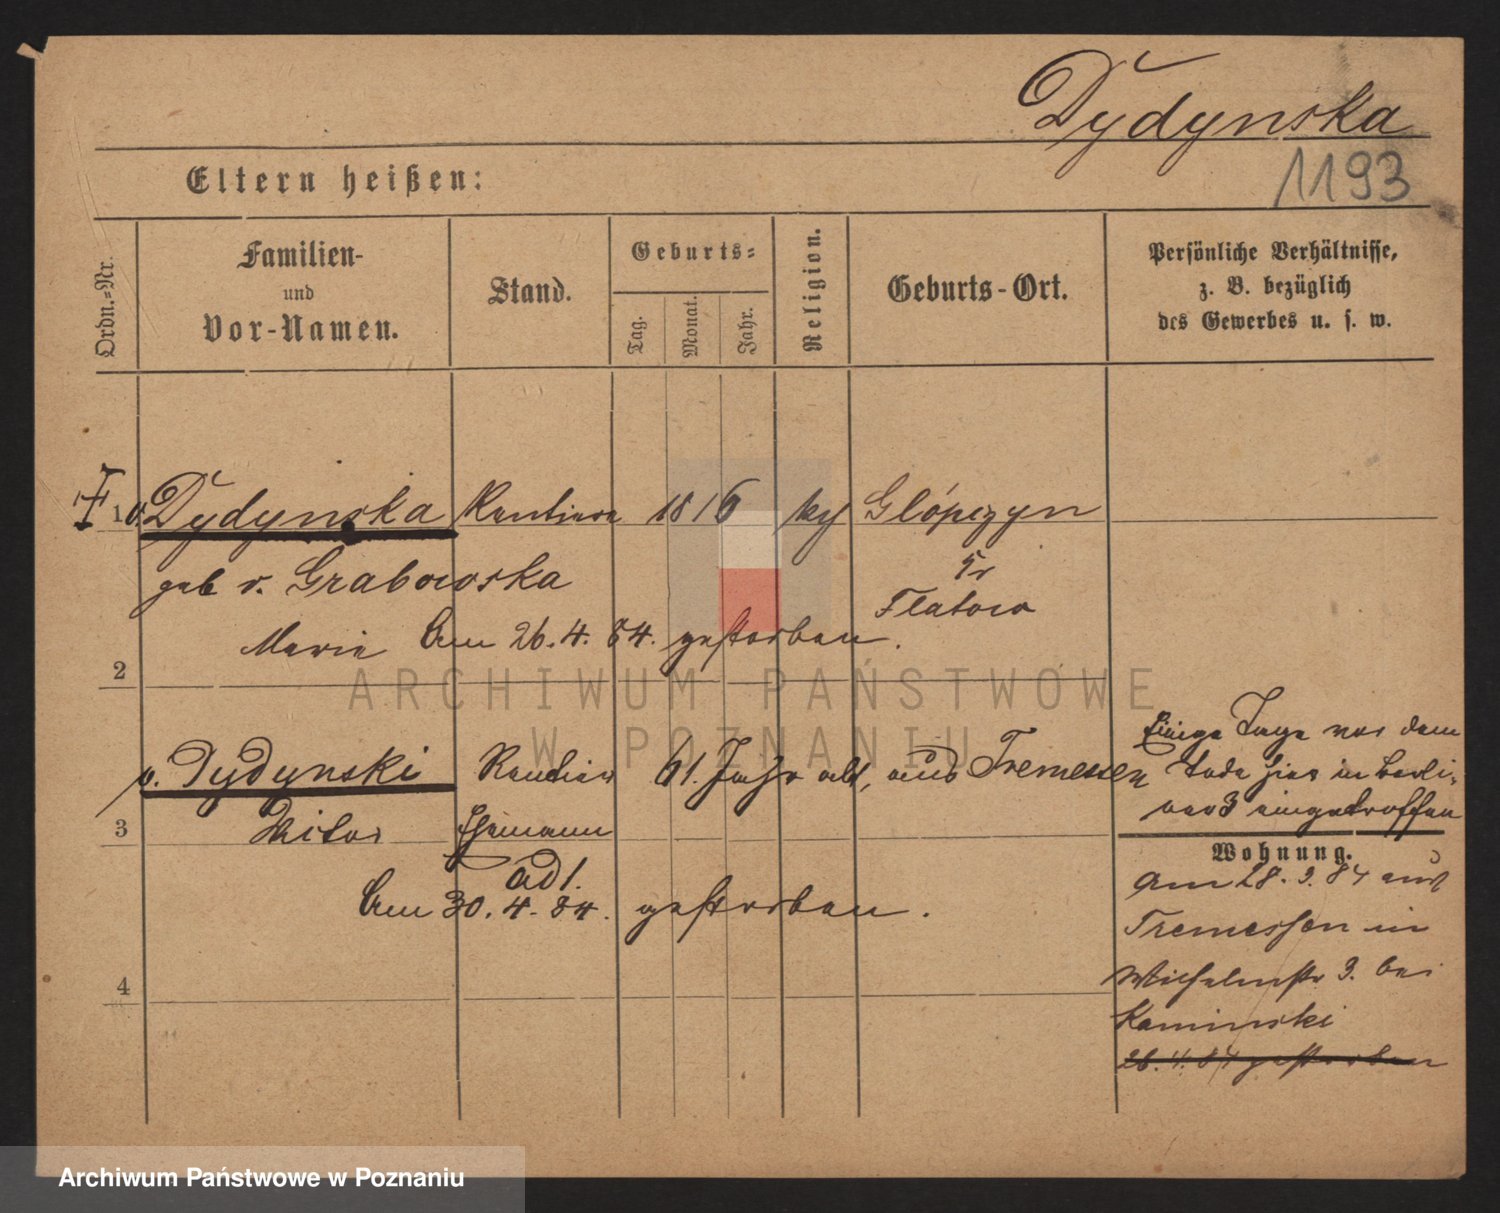 Dydynska
1193
Eltern heißen:
Ordn.=Nr.
Familien-
und
Vor-Namen.
Stand.
Geburts=
Tag.
Monat.
Jahr.
Religion.
Geburts-Ort.
Persönliche Verhältnisse,
z. B. bezüglich
des Gewerbes u. s. w.
1 v. Dydynska Rentiere 1816 kth Glópczyn
geb v. Grabowska Kr
Flatow
Maria Am 26. 4. 84. gestorben.
2
v. Dydynski Rentier 61. Jahr alt, aus Tremessen
3 Ehemann
ad 1.
Am 30. 4. 84. gestorben.
4
Einige Tage vor dem
Tode hier in
eingetroffen
Wohnung.
Am 28. 3. 84 aus
Tremessen in
Wilhelmstr 3. bei
Kaminski
26. 4. 84 gestorben
ARCHIWUM PAŃSTWOWE
W POZNANIU
Archiwum Państwowe w Poznaniu